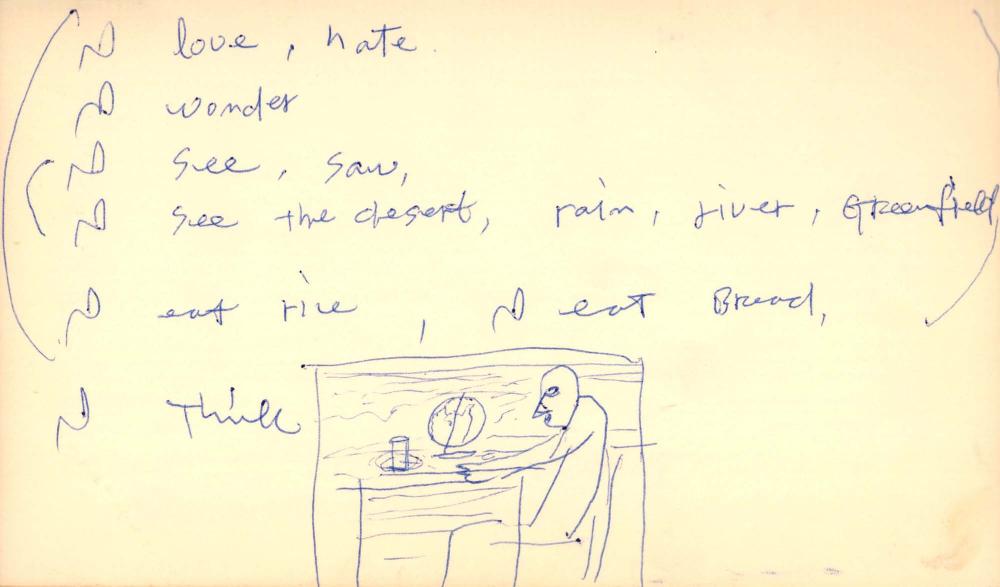 I love, hate.
I wonder
I see, saw,
I see the desert, rain, river, Greenfield
I eat rice, I eat Bread,
I Think